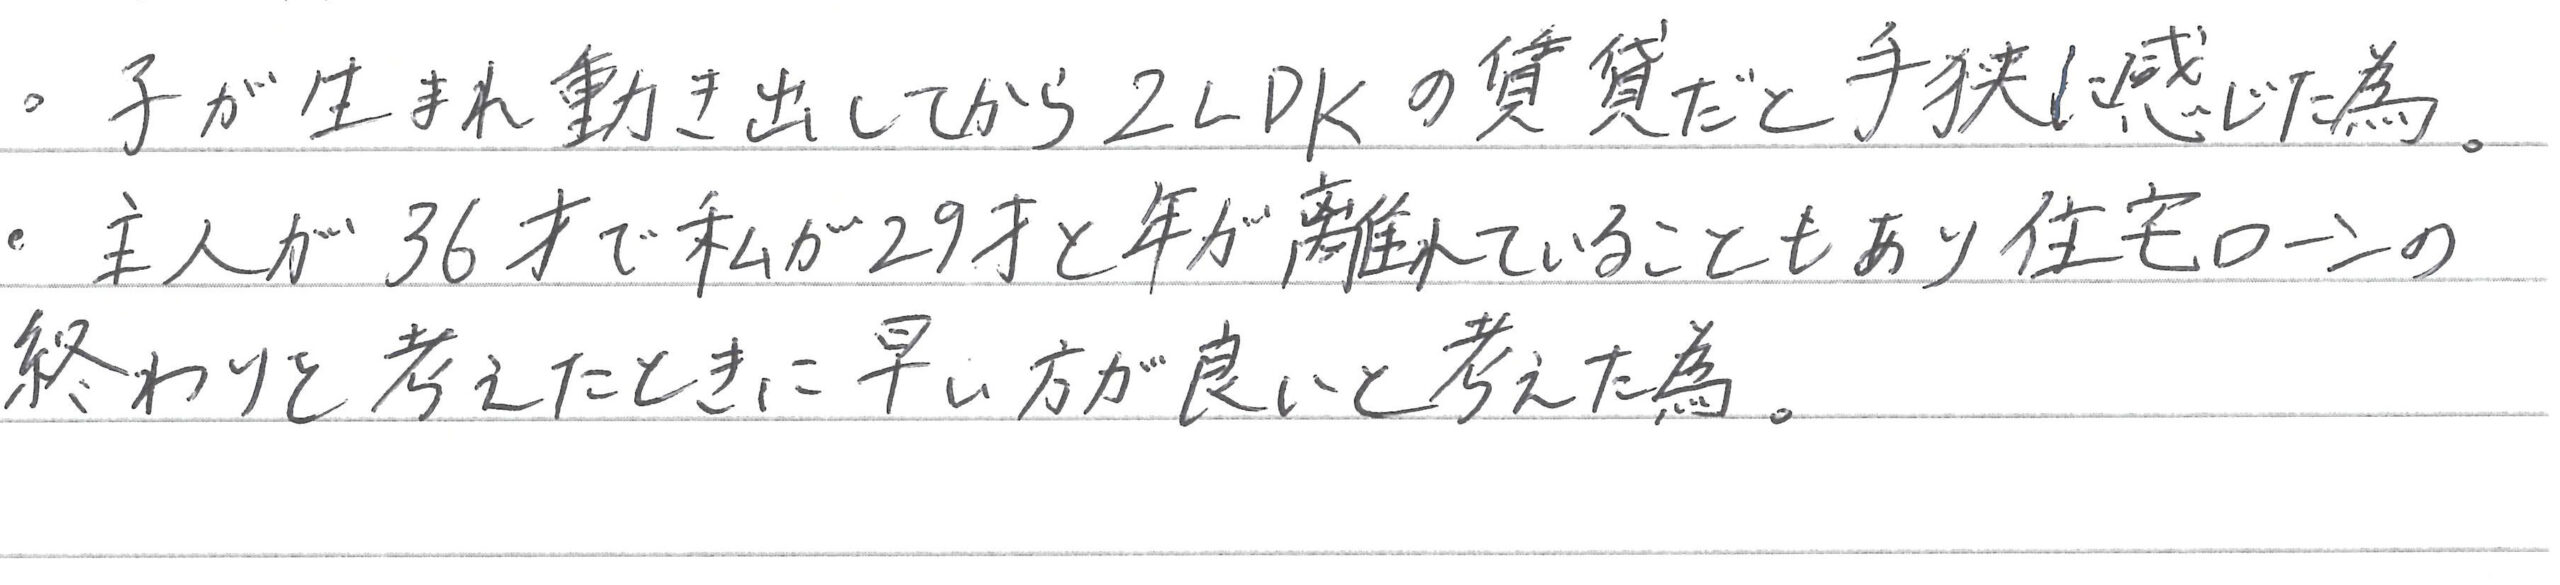 ・子が生まれ動き出してから2LDKの賃貸だと手狭に感じた為。
・主人が36才で私が29才と年が離れていることもあり住宅ローンの
終わりを考えたときに早い方が良いと考えた為。